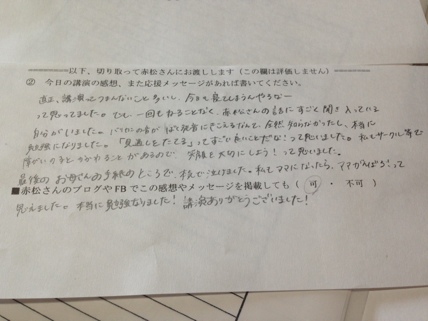 以下、切り取って赤松さんにお渡しします（この欄は評価しません）
② 今日の講演の感想、また応援メッセージがあれば書いてください。
正直、講演ってつまんないこと多いし、今日も寝てしまうんやろなー
って思ってました。でも、一回もねることなく、赤松さんの話にすごく聞き入っている
自分がいました。バリカンの音が
勉強になりました。「見通しをたてる」ってすごい良いことだな！って思いました。私もサークル等で
障がいの子と があるので、笑顔を大切にしよう！って思いました。
最後のお母さんの手紙のところで、 泣けました。私もママになったら、ママがんばろ！って
■赤松さんのブログやFBでこの感想やメッセージを掲載しても（ 可 ・ 不可 ）
思えました。本当に勉強なりました！講演ありがとうございました！